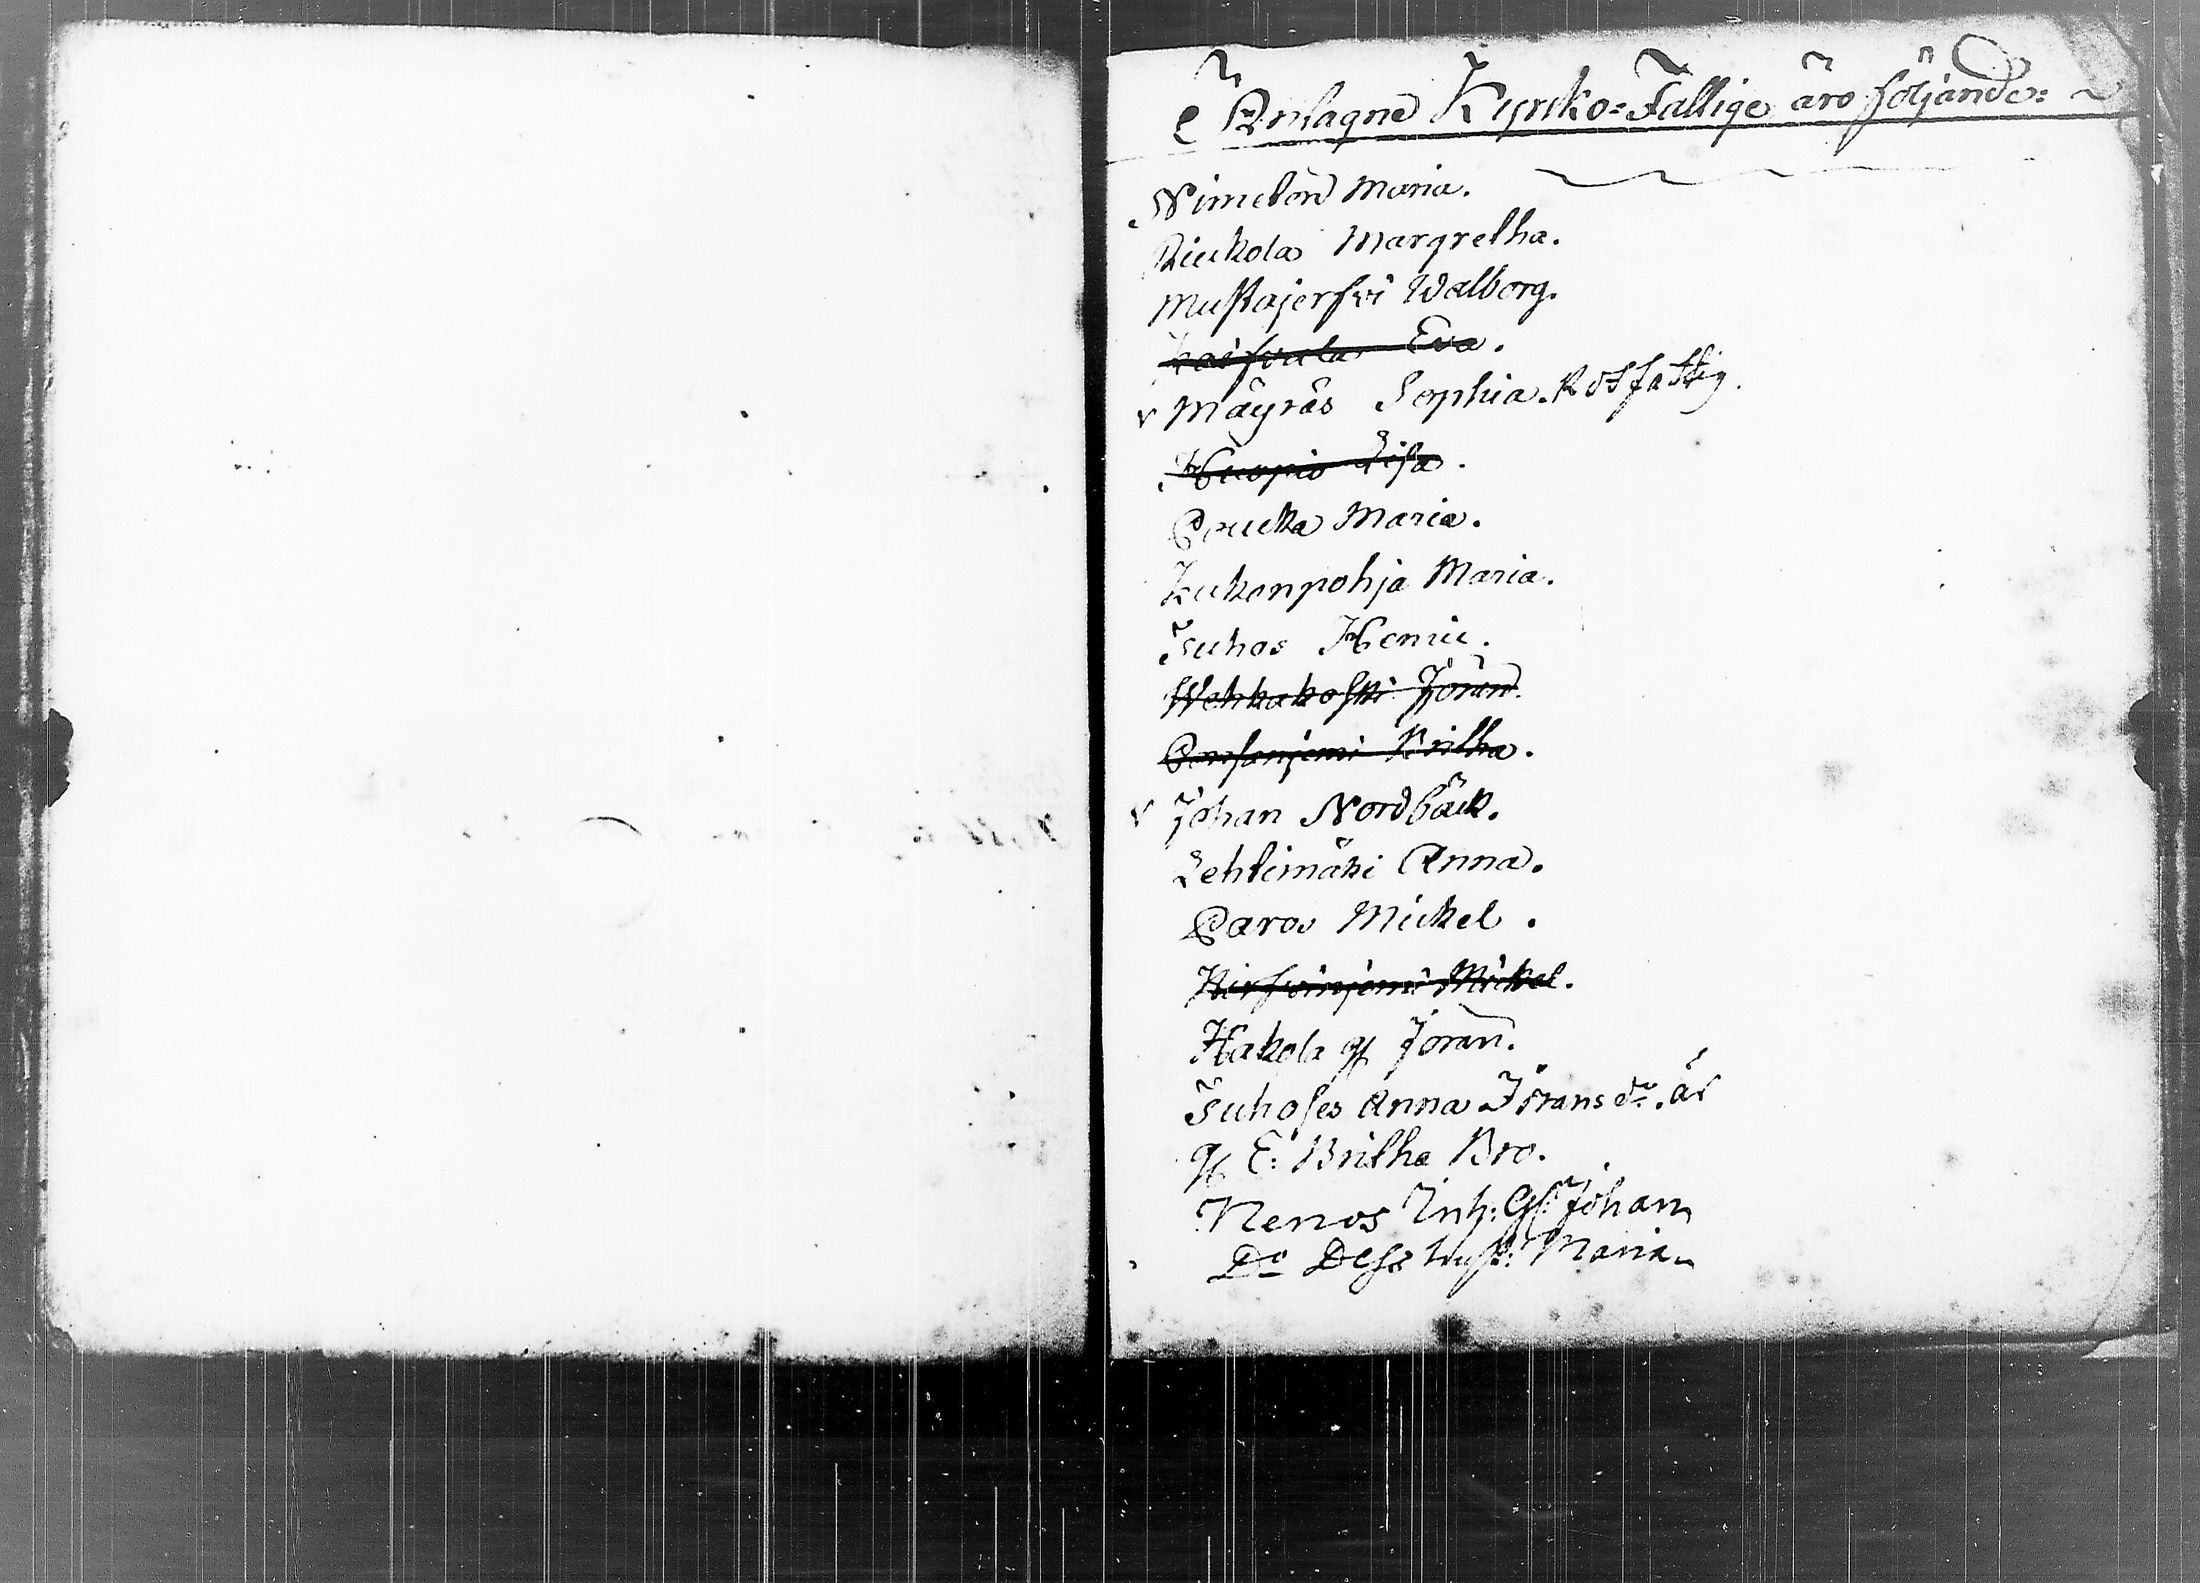 Antagne Kyrcko-Fattige äro följande:
Nimelön Maria.
Riukola Margretha.
Mustajerfwi Walborg.
Eva.
Mäyräs Sophia. Rotfattig.
Kuopio Lisa.
Maria.
Kukonpohja Maria.
Juhos Henric.
Wehkakoski Jöran.
Britha.
Johan Nordbäck.
Lehtimäki Anna.
Paros Mickel.
Hirfwinjemi Mickel.
Hakola Jöran.
Juhoses Anna Jörans dr. är
E: Britha Bro.
Nenos Inh: Gf: Johan
Do Dess hust: Maria